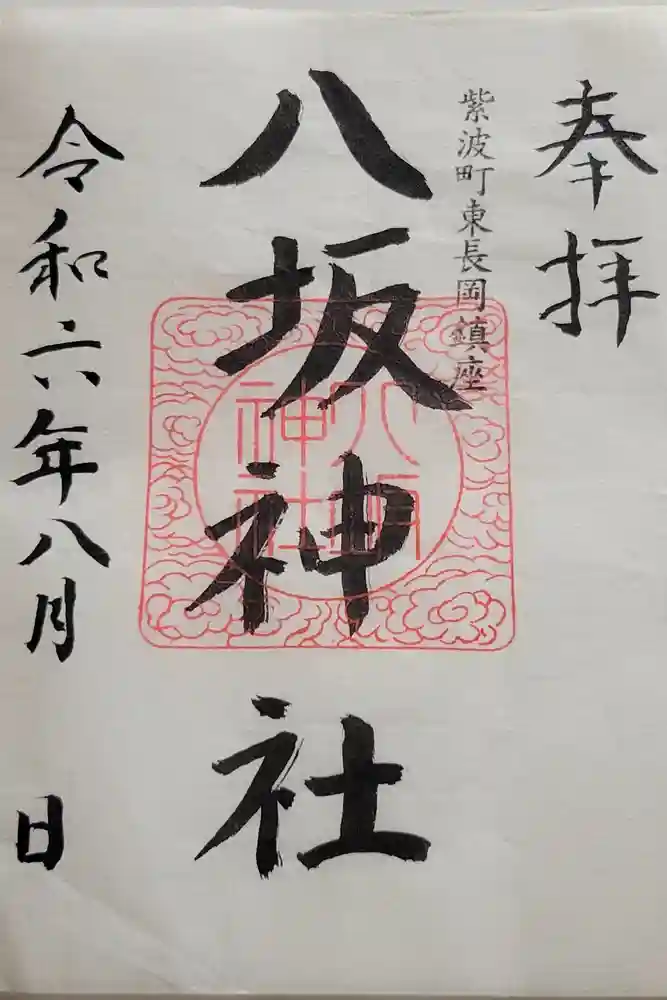 奉拝
紫波町東長岡鎮座
八坂神社
八坂
神社
令和六年八月　日